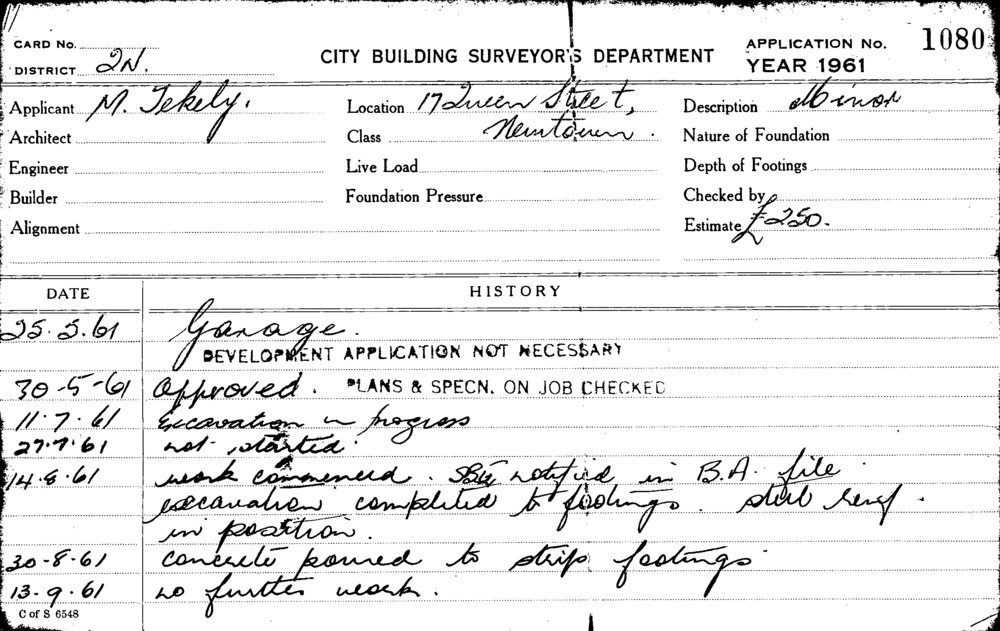 CARD No.
DISTRICT 2N.
CITY BUILDING SURVEYOR'S DEPARTMENT
APPLICATION No. 1080
YEAR 1961
Applicant M. Tekely.
Location 17 Queen Street,
Description Minor
Architect
Class Newtown.
Nature of Foundation
Engineer
Live Load
Depth of Footings
Builder
Foundation Pressure
Checked by
Alignment
Estimate £250.
DATE
HISTORY
25.5.61 Garage.
DEVELOPMENT APPLICATION NOT NECESSARY
30-5-61 Approved. PLANS & SPECN. ON JOB CHECKED
11.7.61 Excavation in progress
27.7.61 not started.
14.8.61 work commenced. notified in B.A. file
excavation completed to footings. steel reinf.
in position.
30-8-61 concrete poured to strip footings
13.9.61 no further work.
C of S 6548